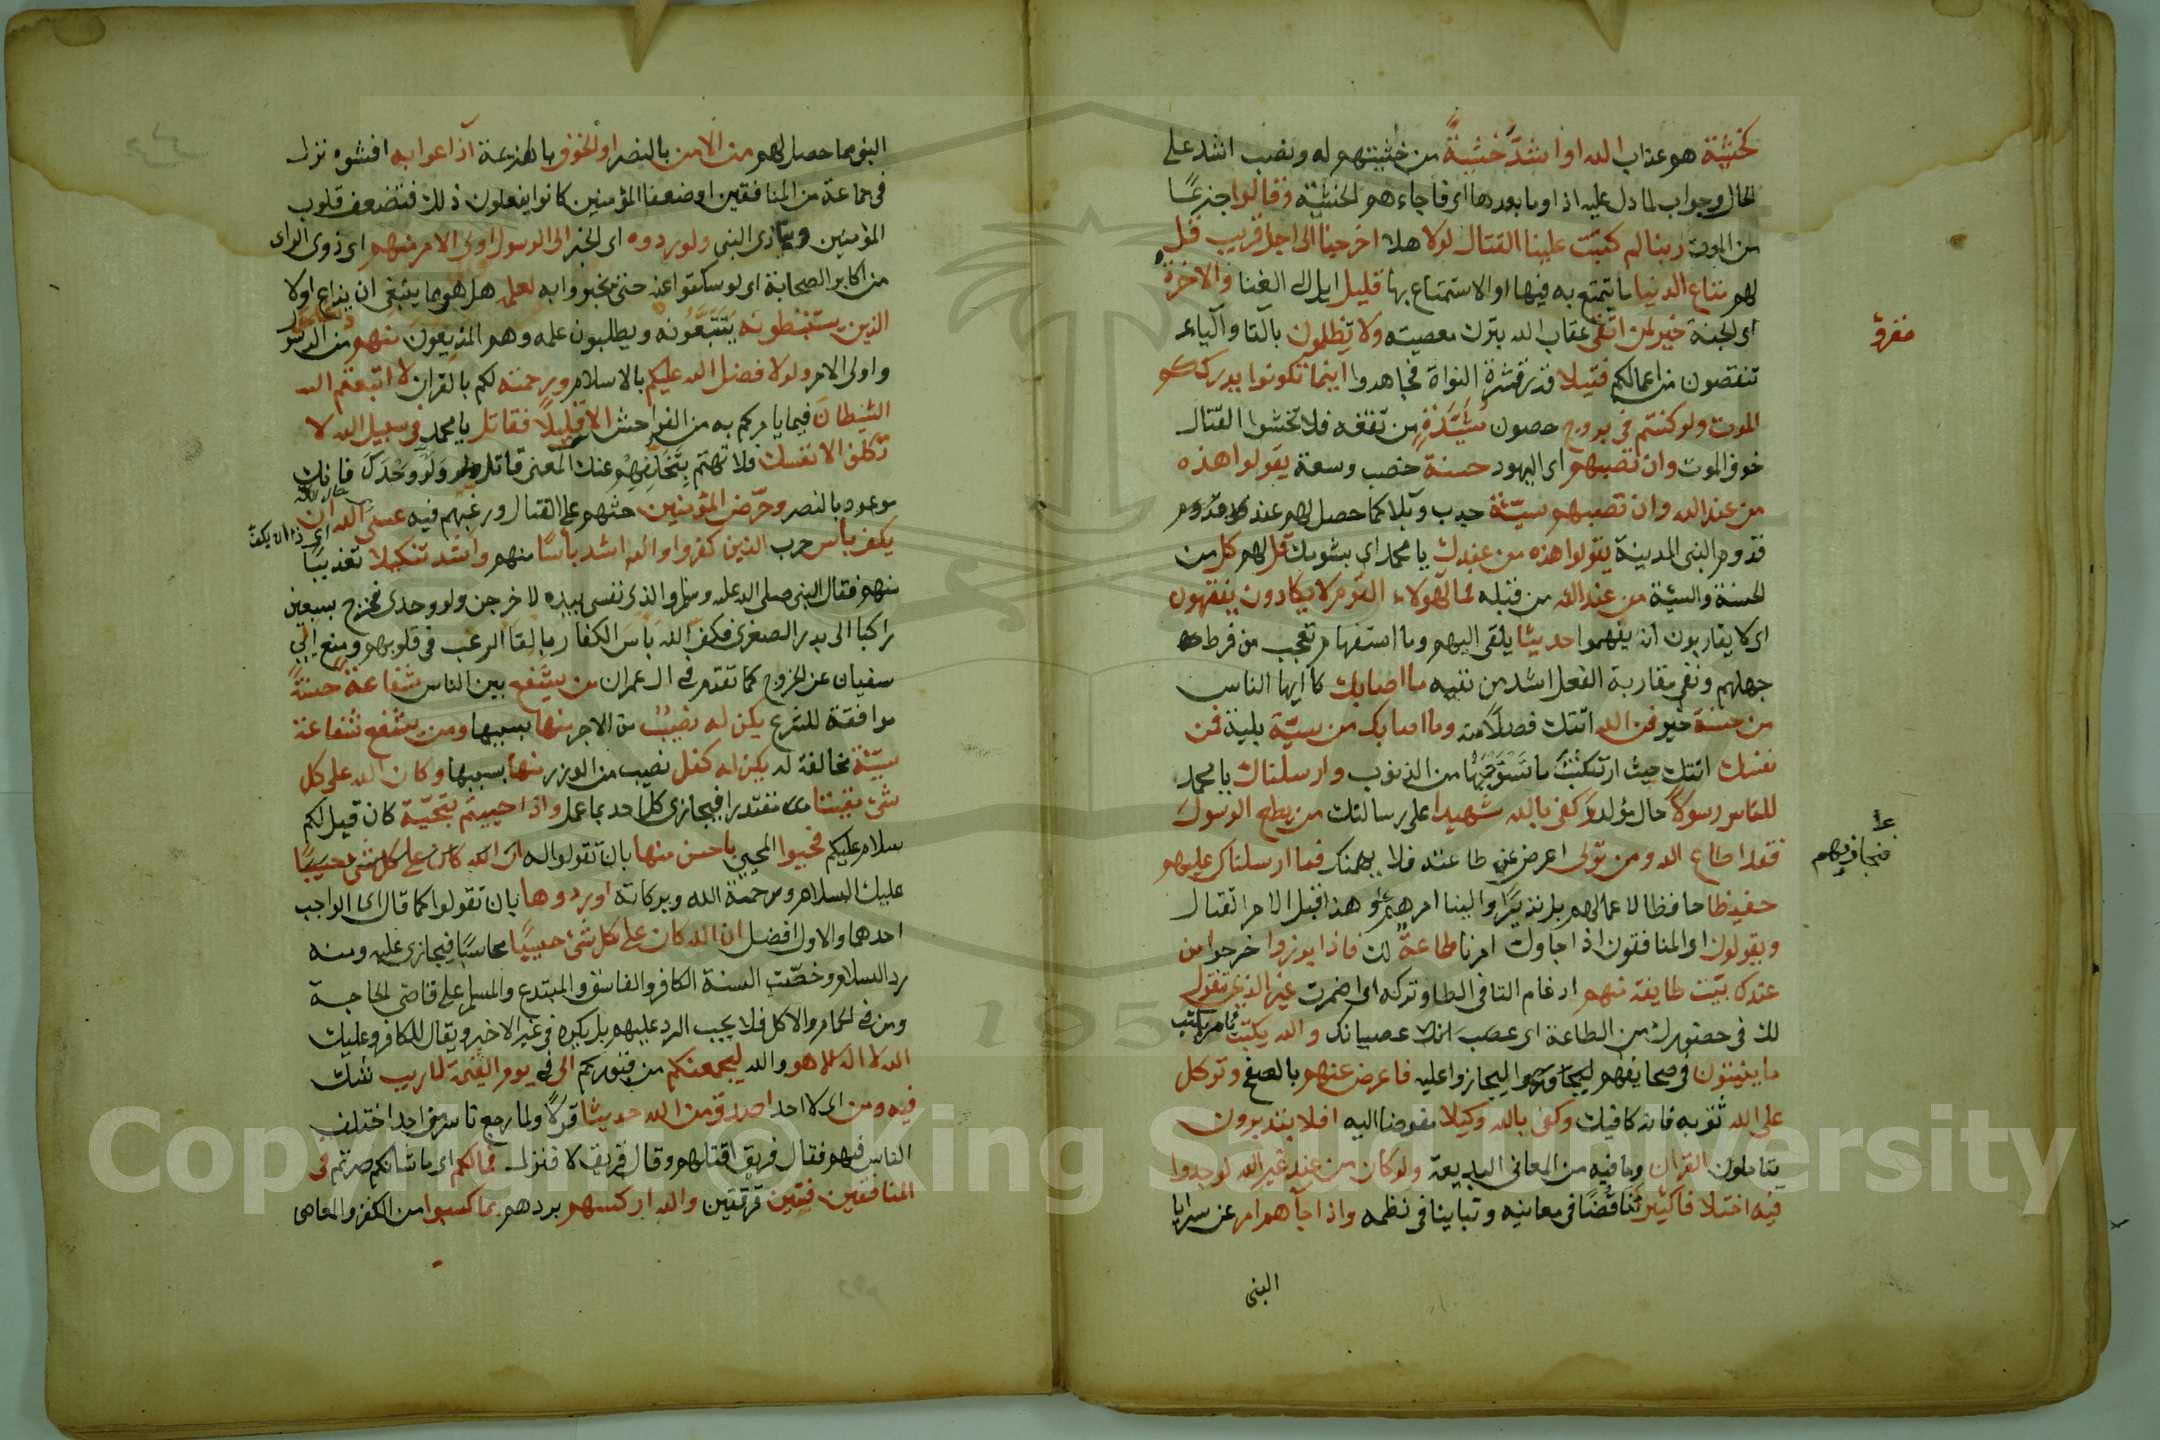 كخشية هو عذاب الله او اشد خشية من خشيتهم له ونصب اشد على
الحال وجواب لما دل عليه اذا وما بعدها اى فاجاءهم الخشية وقالوا جزعا
من الموت ربنا لم كتبت علينا القتال لولا هلا اخرتنا الى اجل قريب قل
لهم متاع الدنيا ما يتمتع به فيها او الاستمتاع بها قليل ايل الى الفنا والاخرة
اى الجنة خير لمن اتقى عقاب الله بترك معصيته ولا تظلمون بالتا والياء
تنقصون من اعمالكم فتيلا قدر قشرة النواة فجاهدوا اينما تكونوا يدرككم
الموت ولو كنتم فى بروج حصون مشيدة مرتفعه فلا تخشوا القتال
خوف الموت وان تصبهم اى اليهود حسنة خصب وسعة يقولوا هذه
من عند الله وان تصبهم سيئة جدب وبلا كما حصل لهم عند
قدوم النبى المدينة يقولوا هذه من عندك يا محمد اى بشومك قل لهم كل من
الحسنة والسيئة من عند الله من قبله فمال هولاء القوم لا يكادون يفقهون
اى لا يقاربون ان يفهموا حديثا يلقى اليهم وما استفهام تعجب من فرط
جهلهم ونفى مقاربة الفعل اشد من نفيه ما اصابك ايها الناس
من حسنة خير فمن الله اتتك فضلا منه وما اصابك من سيئة بلية فمن
نفسك اتتك حيث ارتكبت ما تستوجبها من الذنوب وارسلناك يا محمد
للناس رسولا حال مؤكدة وكفى بالله شهيدا على رسالتك من يطع الرسول
فقد اطاع الله ومن تولى اعرض عن طاعته فلا يهمنك فما ارسلناك عليهم
حفيظا حافظا لاعمالهم بل نذيرا والينا امرهم وهذا قبل الامر بالقتال
ويقولون اى المنافقون اذا جاوك امرنا طاعة لك فاذا برزوا خرجوا من
عندك بيت طايفة منهم ادغام التا فى الطا وتركه اى اضمرت غير الذى تقول
لك فى حضورك من الطاعة اى عصيانك والله يكتب يامر بكتب
ما يبيتون فى صحايفهم ليجازوا عليه فاعرض عنهم بالصفح وتوكل
على الله ثق به فانه كافيك وكفى بالله وكيلا مفوضا اليه افلا يتدبرون
يتاملون القران وما فيه من المعانى البديعة ولو كان من عند غير الله لوجدوا
فيه اختلافا كثيرا تناقضا فى معانيه وتباينا فى نظمه واذا جآهم امر عن سرايا
النبى
النبى مما حصل لهم من الامن بالنصر او الخوف بالهزيمة اذاعوا به افشوه نزل
فى جماعة من المنافقين او ضعفا المؤمنين كانوا يفعلون ذلك فتضعف قلوب
المؤمنين ويتاذى النبى ولو ردوه اى الخبر الى الرسول اولى الامر منهم اى ذوى الراى
من اكابر الصحابة اى لو سكتوا عنه حتى يخبروا به لعلمه هل هو مما ينبغى ان يذاع اولا
الذين يستنبطونه يتتبعونه ويطلبون علمه وهم المذيعون منهم من الرسول
واولى الامر ولولا فضل الله عليكم بالاسلام ورحمته لكم بالقران لاتبعتم
الشيطان فيما يامركم به من الفواحش الا قليلا فقاتل يا محمد فى سبيل الله لا
تكلف الا نفسك فلا تهتم بتخلفهم عنك المعنى قاتل ولو وحدك فانك
موعود بالنصر وحرض المؤمنين حثهم على القتال ورغبهم فيه عسى الله ان
يكف باس حرب الذين كفروا والله اشد باسا منهم واشد تنكيلا تعذيبا
منهم فقال النبى صلى الله عليه وسلم والذى نفسى بيده لاخرجن ولو وحدى فخرج بسبعين
راكبا الى بدر الصغرى فكف الله باس الكفار بالقا الرعب فى قلوبهم ومنع ابى
سفيان عن الخروج كما تقدم فى ال عمران من يشفع بين الناس شفاعة حسنة
موافقة للشرع يكن له نصيب من الاجر منها بسببها ومن يشفع شفاعة
سيئة مخالفة له يكن له كفل نصيب من الوزر منها بسببها وكان الله على كل
شئ مقيتا مقتدرا فيجازى كل احد بما عمل واذا حييتم بتحية كان قيل لكم
سلام عليكم فحيوا المحيى باحسن منها بان تقولوا له ان الله كان على كل شئ حسيبا
عليك السلام ورحمة الله وبركاته او ردوها بان تقولوا كما قال اى الواجب
احدهما والاول افضل ان الله كان على كل شئ حسيبا محاسبا فيجازى عليه ومنه
رد السلام وخصت السنة الكافر والفاسق والمبتدع والمسلم على قاضى الحاجة
ومن فى الحمام والاكل فلا يجب الرد عليهم بل يكره فى غير الاخير ويقال للكافر وعليك
الله لا اله الا هو والله ليجمعنكم من قبوركم الى فى يوم القيمة لا ريب شك
فيه ومن اى لا احد اصدق من الله حديثا قولا ولما رجع ناس من احد اختلف
الناس فيهم فقال فريق اقتلهم وقال فريق لا فنزل فمالكم اى ما شانكم صرتم فى
المنافقين فئتين فرقتين والله اركسهم ردهم بما كسبوا من الكفر والمعاصى
Copyright © King Saud University